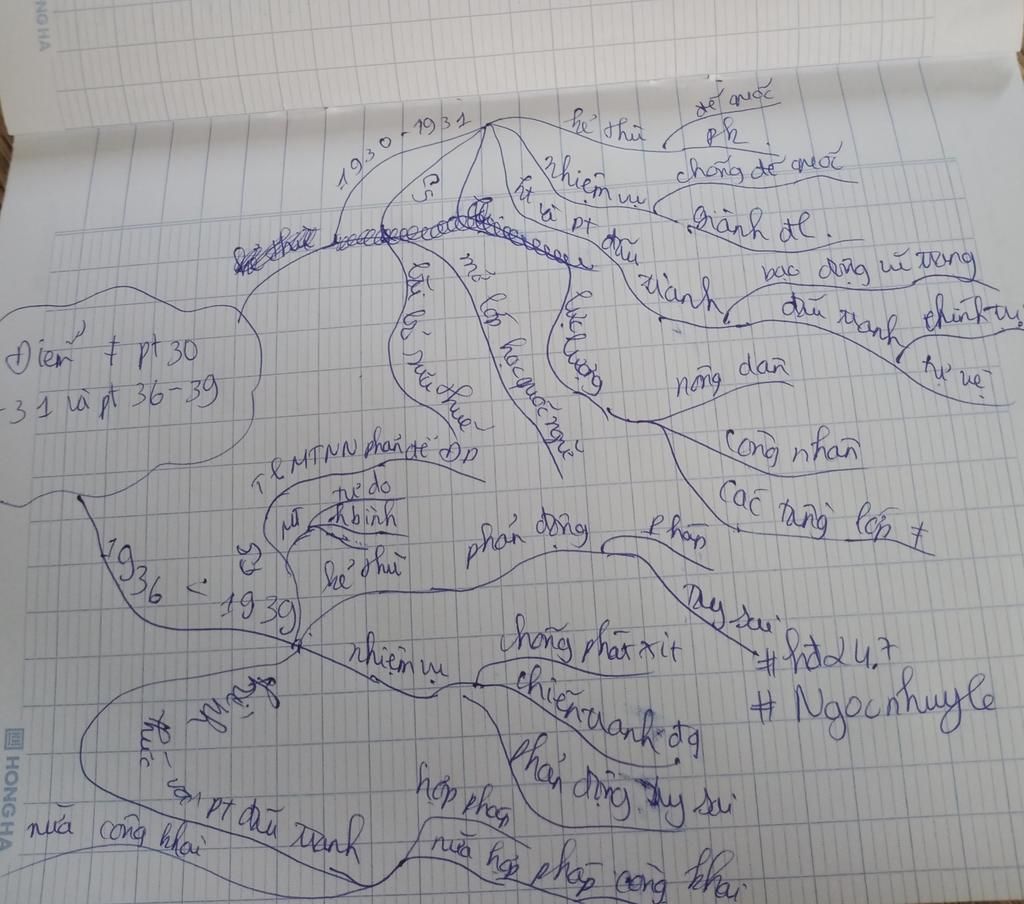 HONGHA
Điểm ≠ pt 30
-31 và pt 36-39
1930-1931
kẻ thù
đế quốc
pk
nhiệm vụ
chống đế quốc
giành đl.
ht và pt đấu
tranh
bạo động vũ trang
đấu tranh chính trị
tự vệ
CS
bãi bỏ siêu thuế
mở lớp học quốc ngữ
lực lượng
nông dân
công nhân
các tầng lớp ≠
1936 < 1939
TL MTNN phản đế ĐD
MT
tự do
h bình
kẻ thù
phản động
Pháp
Tay sai
nhiệm vụ
chống phát xít
chiến tranh đq
phản động tay sai
hình
thức
pt đấu tranh
hợp pháp
nửa hợp pháp công khai
nửa công khai
#hd247
# Ngocnhuyle
HONGHA